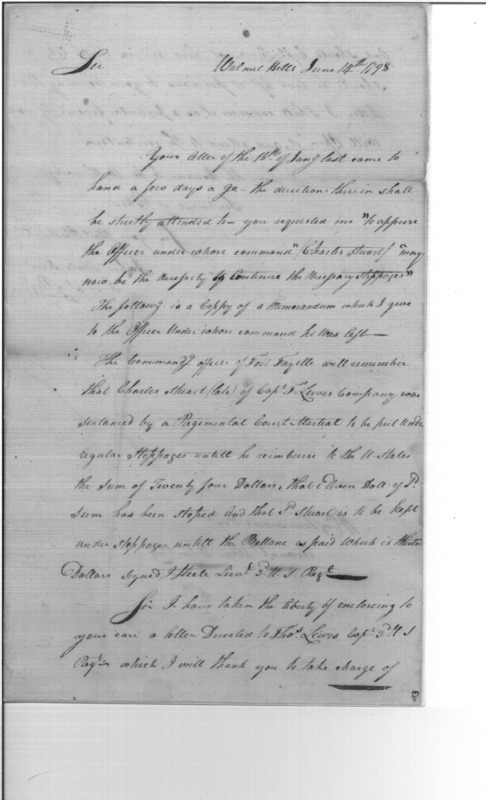 Sir Walnut Hills June 14th 1798
Your letter of the 18th of Jany last came to
hand a few days a go - the directions therein shall
be strictly attended to - you requested me "to apprise
the Officer under whose command" (Charles Stuart) "may
now be the necessity to continue the necessary stoppages"
The followg. is a Coppy of a Memorandum which I gave
to the Officer under whose command he was left —
The Commandg officer of Fort Fayette will remember
that Charles Stuart (late) of Capt. T. Lewis Company was
sentanced by a Regimental Court Martial to be put under
regular stoppages untill he reimburse to the U. States
the sum of Twenty four Dollars, that Eleven Doll. of sd.
sum has been stoped and that sd. Stuart is to be kept
under stoppages untill the Ballane is paid which is thirteen
Dollars signed J Steele Lieut. 3d U. S. Regt.
Sir I have taken the liberty of enclosing to
your care a letter Directed to Thos. Lewis Capt. 3d U. S
Regt. which I will thank you to take charge of